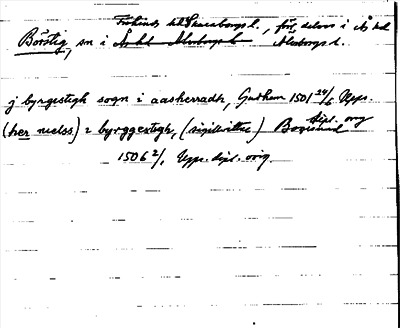 Frökinds hd Skaraborgs l., förr delvis i Ås hd
Börstig, sn i Ås hd Älvsborgs l. Älvsborgs l.
j byrgestigh sogn i aasherradh, Gudhem 1501 24/6 Upps.
dipl. orig
(her nielss) i byrggestigh, (sigillvittne) Bogesund
1506 2/1 Upps. dipl. orig.